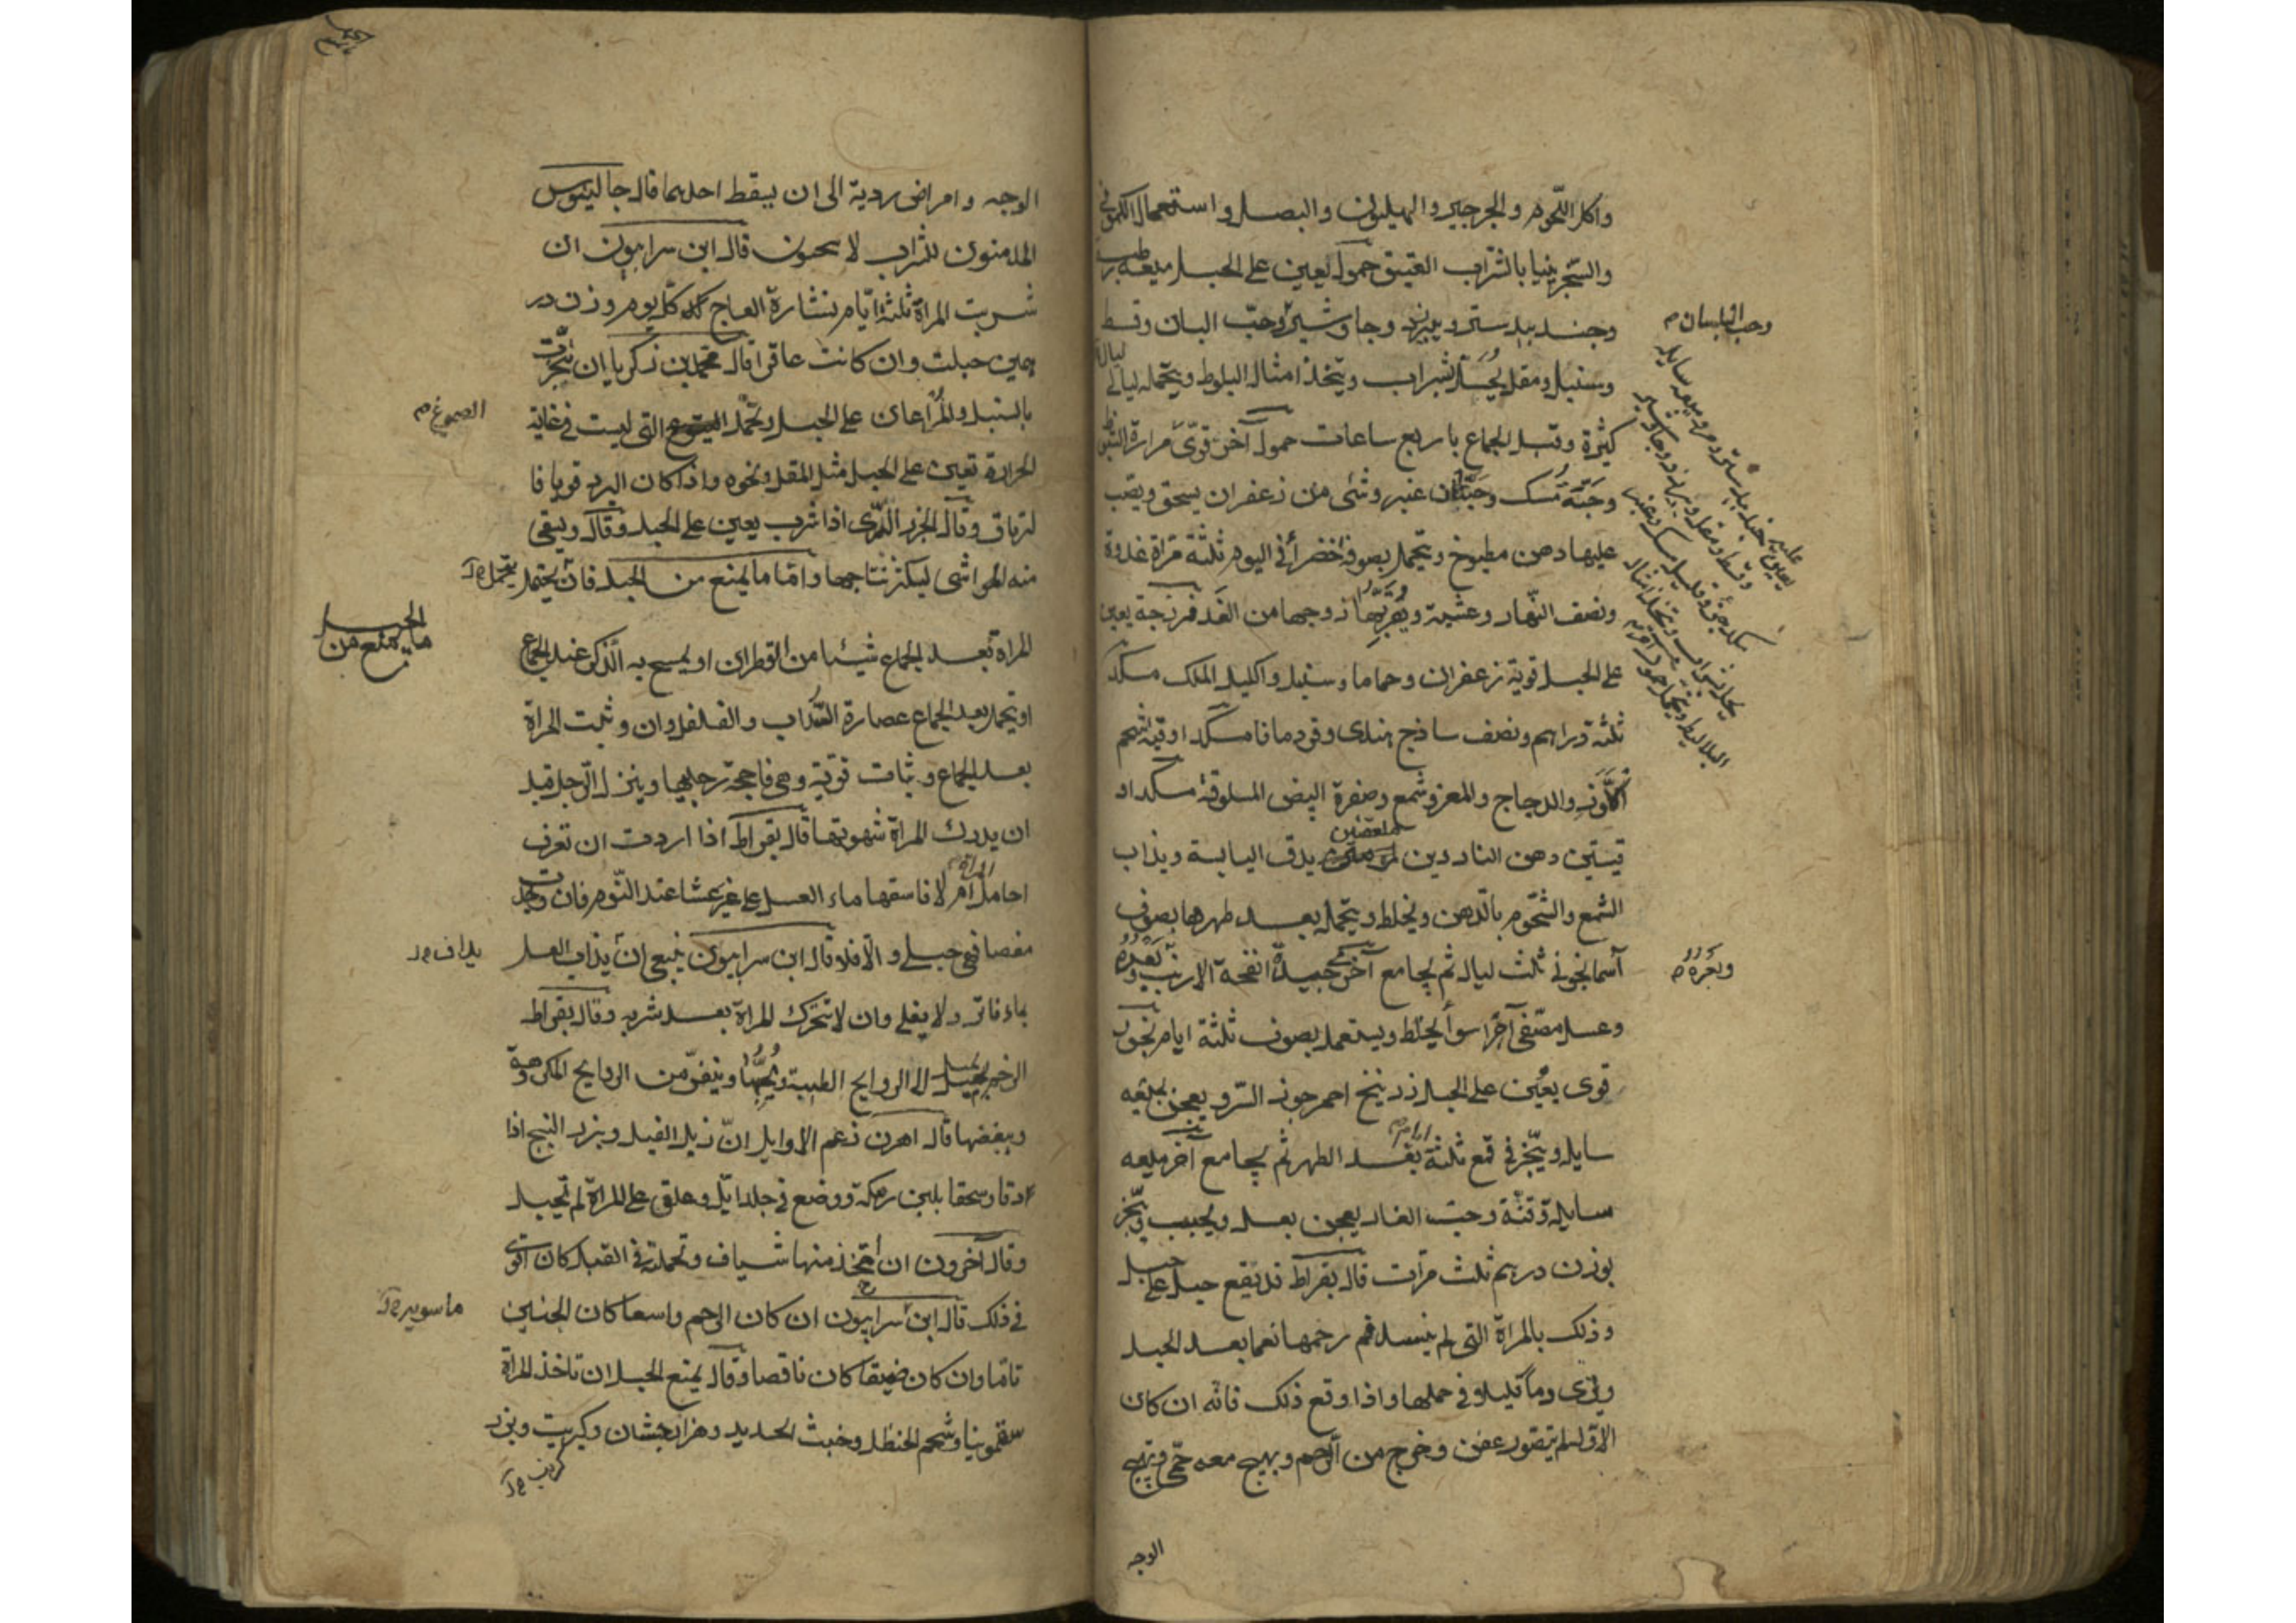 واكل اللحوم والجرجير والهيليون والبصل واستعمال الكموني
والسجزينيا بالشراب العتيق حمول يعين على الحبل ميعه رطب
وجندبيدستر وبيرزد وجاوشير وحب البان وقسط
وحب البلسان
وسنبل ومقل يحل بشراب ويتخذ امثال البلوط ويتحمله ليالي
كثيرة وقبل الجماع باربع ساعات حمول آخر قوى مرارة
وحبة مسك وحبتان عنبر وشئ من زعفران يسحق ويصب
عليها دهن مطبوخ ويتحمل بصوفة خضرا في اليوم ثلثة مرات غدوة
ونصف النهار وعشية ويقربها زوجها من الغد فرزجة يعين
على الحبل قوية زعفران وحماما وسنبل واكليل الملك مسكد
ثلثة دراهم ونصف ساذج هندى وقردمانا مسكد اوقية شحم
والدجاج والمعز وشمع وصفرة البيض المسلوقة مسكد او
قيتين دهن الناردين ملعقتين يدق اليابسة ويذاب
الشمع والشحوم بالدهن ويخلط ويتحمله بعد طهرها بصوف
آسمانجوني ثلث ليال ثم يجامع آخر جيدة انفحة الارنب وبعره
وبعره
وعسل مصفى اجزا سوأ يخلط ويستعمل بصوف ثلثة ايام بخور
قوى يعين على الحبل زرنيخ احمر جوز السرو يعجن بميعه
سايله ويبخر في قمع ثلثة ايام بعد الطهر ثم يجامع آخر ميعه
سايلة وقنة وحب الغار يعجن بعسل ويحبب ويبخر
بوزن درهم ثلث مرات قال بقراط قد يقع حبل على حبل
وذلك بالمراة التى لم ينسد فم رحمها نعما بعد الحبل
وترى دما قليلا في حملها واذا وقع ذلك فانه ان كان
الاول لم يتصور عفن وخرج من الرحم ويهيج معه حمى وتهيج
الوجه
الوجه وامراض ردية الى ان يسقط احدهما قال جالينوس
المدمنون للشراب لا يحبون قال ابن سرابيون ان
شربت المراة ثلثة ايام نشارة العاج كل يوم وزن در
همين حبلت وان كانت عاقرا قال محمد بن زكريا ان تبخرت
بالسنبل والمر اعان على الحبل وتحمل الصموغ التى ليست في غاية
الصموغ
الحرارة تعين على الحبل مثل المقل ونحوه واذا كان البرد قويا فا
لترياق وقال الجزر البرى اذا شرب يعين على الحبل وقال ويسقى
منه المواشى ليكثر نتاجها واما ما يمنع من الحبل فان يحتمل
ما يمنع من الحبل
المراة بعد الجماع شيئا من القطران او يمسح به الذكر عند الجماع
او يتحمل بعد الجماع عصارة السداب والفلفل وان وثبت المراة
بعد الجماع وثبات قوية وهى فاحجة رجليها وينزل الرجل قبل
ان يدرك المراة شهوتها قال بقراط اذا اردت ان تعرف
احامل المراة ام لا فاسقها ماء العسل على غير عشا عند النوم فان وجدت
مغصا فهى حبلى والا فلا قال ابن سرابيون ينبغى ان يذاب العسل
يداف
بماء فاتر ولا يغلى وان لا تتحرك المراة بعد شربه وقال بقراط
الرحم يميل الى الروايح الطيبة ويحبها وينفر من الروايح المكروهة
ويبغضها قال اهرن زعم الاوايل ان زبل الفيل وبزر البنج اذا
دقا وسحقا بلبن رمكة ووضع في جلد ايل وعلق على المراة لم تحبل
وقال آخرون ان اتخذ منها شياف وتحملته في القبل كان اقوى
في ذلك قال ابن سرابيون ان كان الرحم واسعا كان الجنين
ماسويه
تاما وان كان ضيقا كان ناقصا وقال يمنع الحبل ان تاخذ المراة
سقمونيا وشحم الحنظل وخبث الحديد وهزارجشان وكبريت وبزر
كرنب